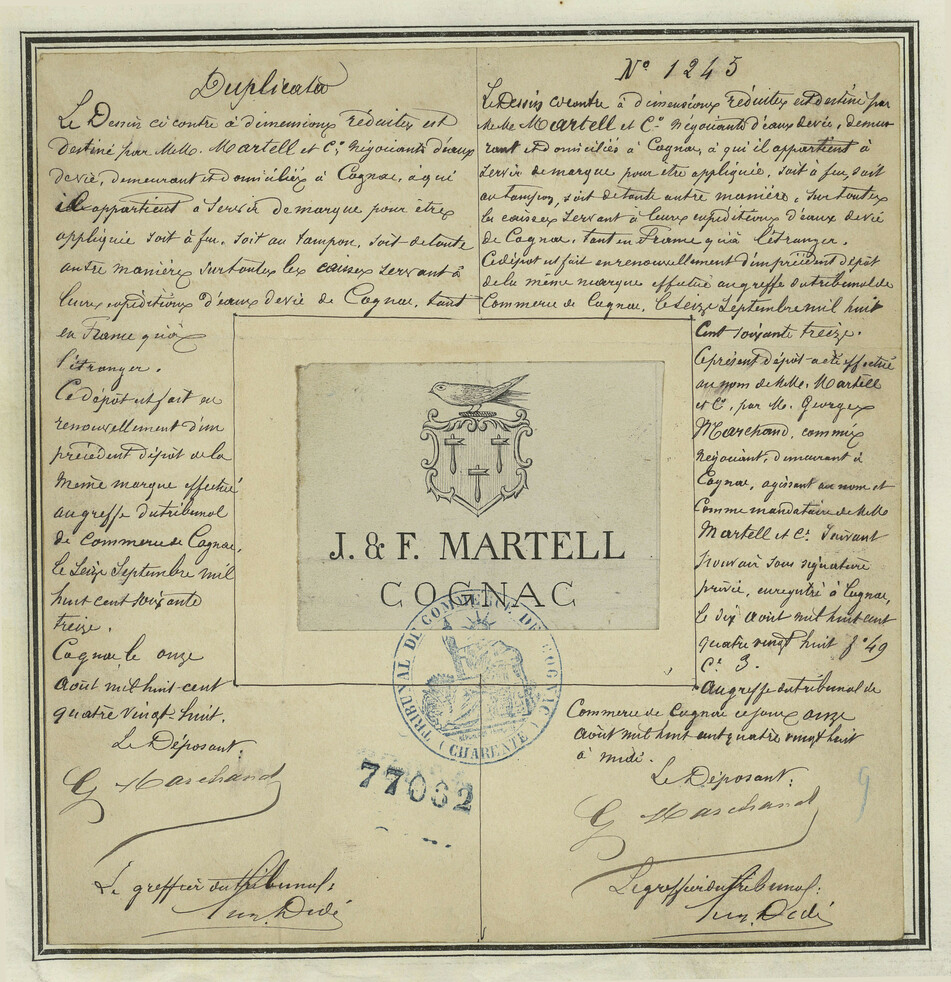 Duplicata
Le Dessin ci contre à dimensions réduites est
destiné par MM. Martell et Cie, Négociants d'eaux
de vie, demeurant et domiciliés à Cognac, à qui
il appartient à Servir de marque pour être
appliquée soit à feu, soit au tampon, soit de toute
autre manière sur toutes les caisses servant à
leurs expéditions d'eaux de vie de Cognac, tant
en France qu'à
l'étranger.
Ce dépôt est fait en
renouvellement d'un
précédent dépôt de la
même marque effectué
au greffe du tribunal
de Commerce de Cognac,
le Seize Septembre mil
huit cent soixante
treize.
Cognac le onze
Août mil huit-cent
quatre vingt huit.
Le Déposant:
G Marchand
Le greffier du tribunal:
Dedé
No 1245
Le Dessin ci contre à dimensions réduites est destiné par
MM. Martell et Cie Négociants d'eaux de vie, demeu-
rant et domiciliés à Cognac, à qui il appartient à
servir de marque pour être appliquée, soit à feu, soit
au tampon, soit de toute autre manière, sur toutes
les caisses servant à leurs expéditions d'eaux de vie
de Cognac, tant en France qu'à l'étranger.
Ce dépôt est fait en renouvellement d'un précédent dépôt
de la même marque effectué au greffe du tribunal de
Commerce de Cognac, le seize Septembre mil huit
Cent soixante treize.
Le présent dépôt a été effectué
au nom de MM. Martell
et Cie, par M. Georges
Marchand, commis
Négociant, demeurant à
Cognac, agissant au nom et
Comme mandataire de MM
Martell et Cie Suivant
pouvoir sous signature
privée, enregistré à Cognac,
le dix Août mil huit cent
quatre vingt huit fo 49
Ce 3.
Au greffe du tribunal de
Commerce de Cognac ce jour onze
Août mil huit cent quatre vingt huit
à midi.
Le Déposant:
G Marchand
Le greffier du tribunal:
Dedé
J. & F. MARTELL
COGNAC
TRIBUNAL DE COMMERCE DE COGNAC
(CHARENTE)
77062
9